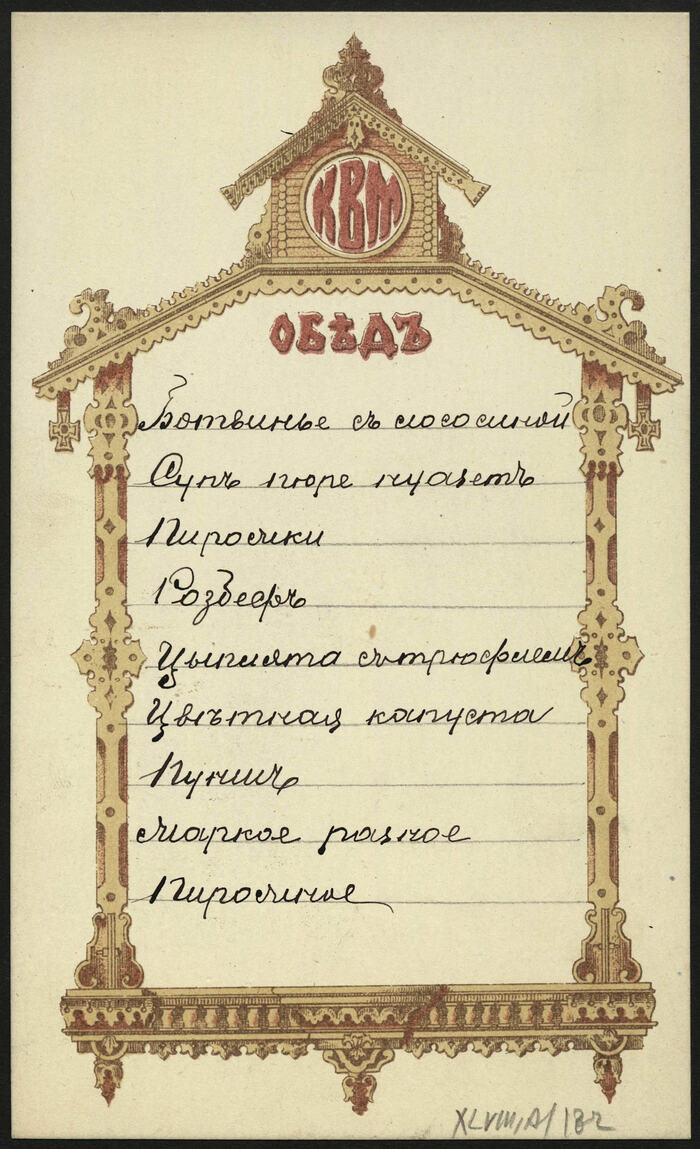 КВМ
ОБѢДЪ
Ботвинье съ лососиной
Супъ пюре
Пирожки
Розбефъ
Цыплята съ трюфлемъ
Цвѣтная капуста
Пуншъ
Жаркое разное
Пирожное
XLVIII, A/182